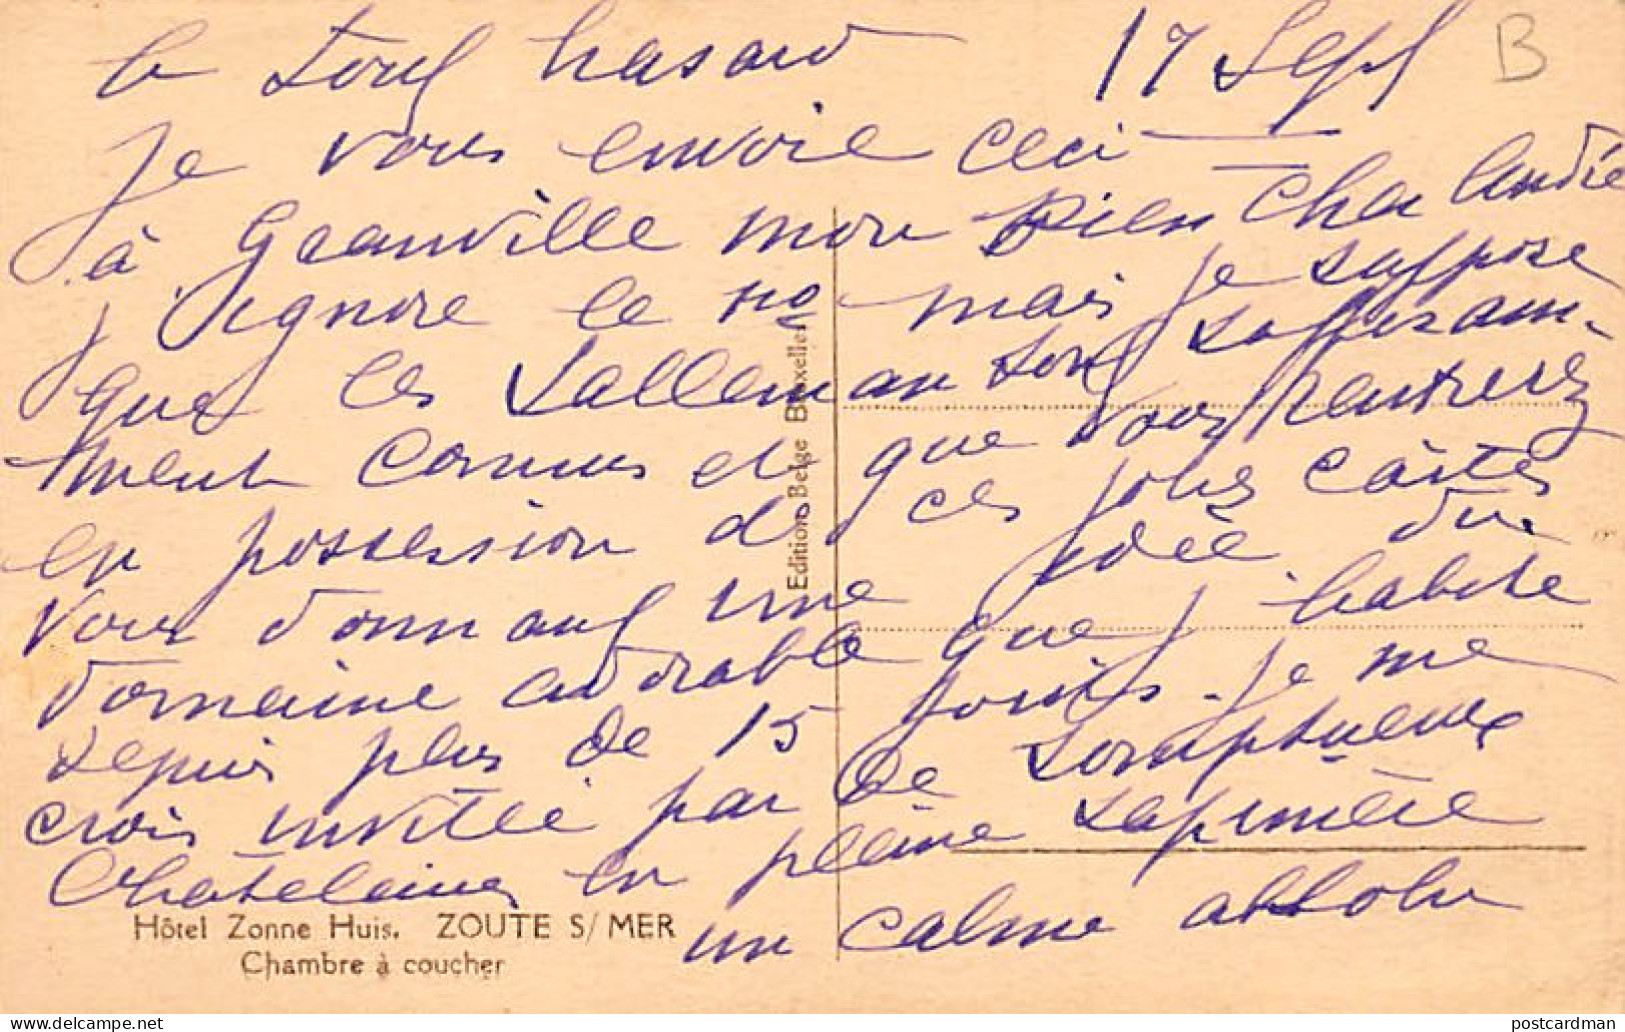 à tout hasard 17 Sept B
Je vous envoie ceci
à Granville mon bien cher Claudie
J'ignore le no mais je suppose
que les Lalleman sont suffisam-
ment connus et que vous rentrerez
en possession de ces jolies cartes
vous donnant une idée du
domaine adorable que j'habite
depuis plus de 15 jours. Je me
crois invitée par de somptueux
Châtelains en pleine sapinière
un calme absolu
Hôtel Zonne Huis. ZOUTE S/MER
Chambre à coucher
Edition Belge Bruxelles
delcampe.net
postcardman